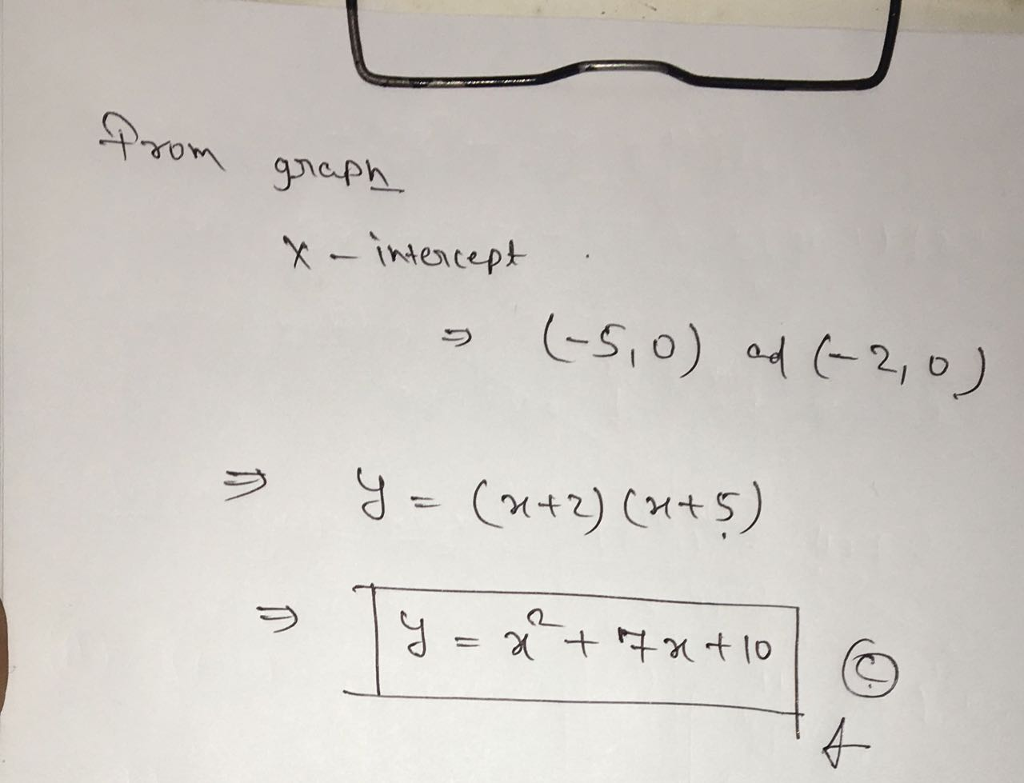 From graph
x - intercept
⇒ (-5,0) ad (-2,0)
⇒ y = (x+2)(x+5)
⇒ y = x² + 7x + 10 Ⓒ